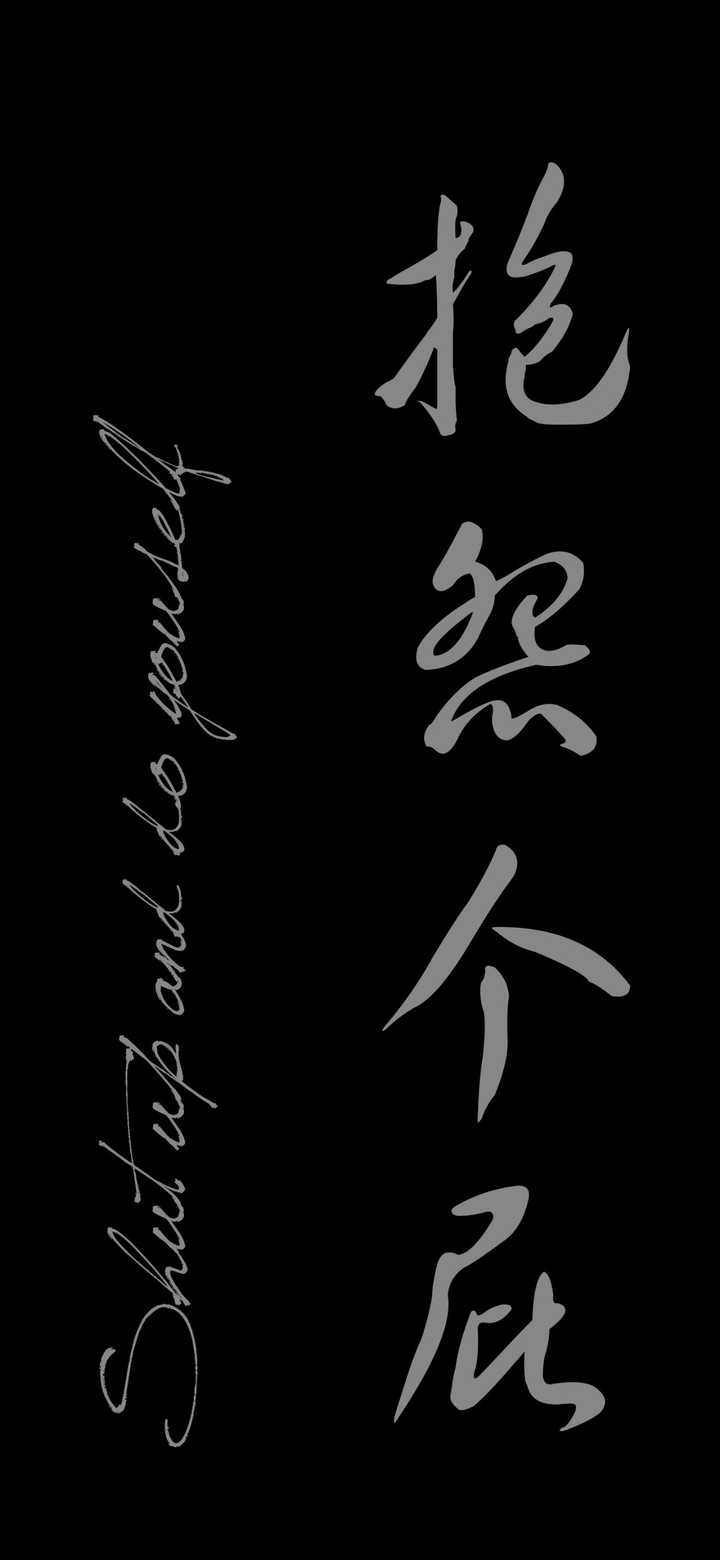 抱怨个屁
Shut up and do youself